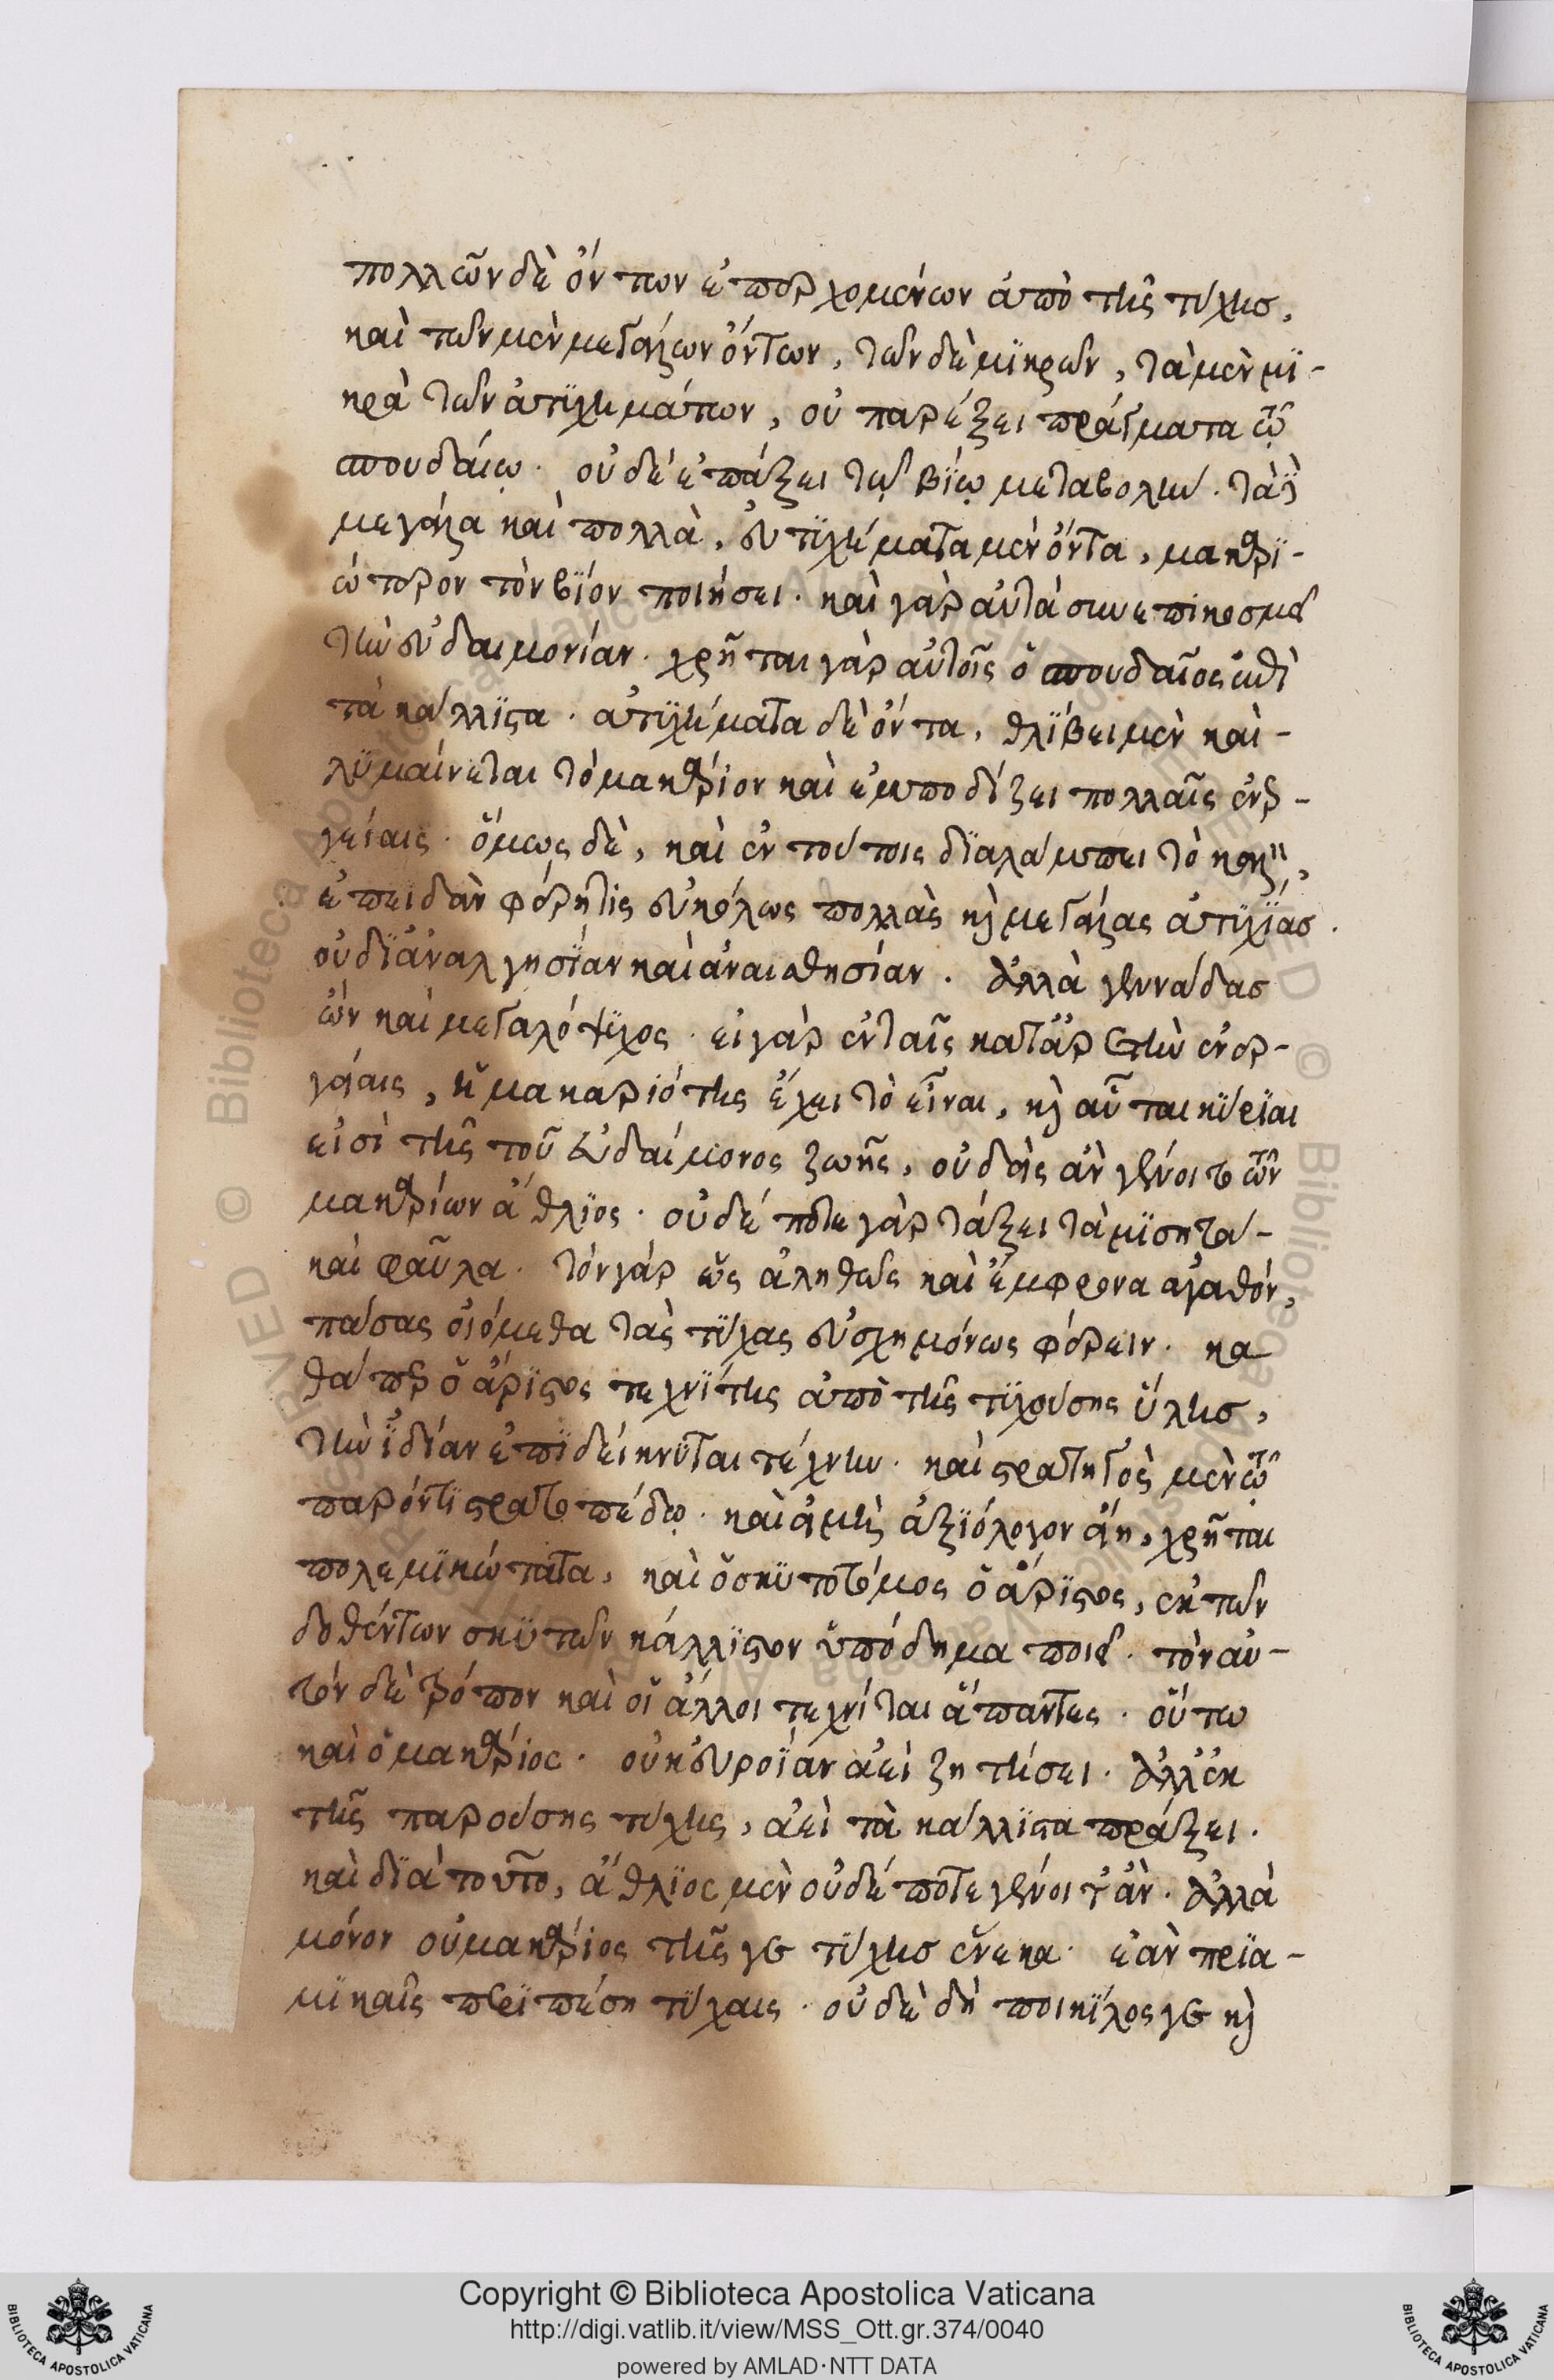 πολλῶν δὲ ὄντων ἐπερχομένων ἀπὸ τῆς τύχης,
καὶ τῶν μὲν μεγάλων ὄντων, τῶν δὲ μϊκρῶν, τὰ μὲν μϊ-
κρὰ τῶν ἀτυχημάτων, οὐ παρέξει πράγματα τῷ
σπουδαίῳ. οὐδὲ ἐπάξει τῷ βίῳ μεταβολήν. τὰ δὲ
μεγάλα καὶ πολλὰ, εὐτυχήματα μὲν ὄντα, μακαρϊ-
ώτερον τὸν βίον ποιήσει. καὶ γὰρ αὐτὰ συνεπικοσμεῖ
τὴν εὐδαιμονίαν. χρῆται γὰρ αὐτοῖς ὁ σπουδαῖος ἐπὶ
τὰ κάλλϊστα. ἀτυχήματα δὲ ὄντα, θλίβει μὲν καὶ-
λϋμαίνεται τὸ μακάριον καὶ ἐμποδίζει πολλαῖς ἐνερ-
γείαις. ὅμως δὲ, καὶ ἐν τούτοις διαλάμπει τὸ καλὸν,
ἐπειδὰν φέρῃ τις εὐκόλως πολλὰς καὶ μεγάλας ἀτυχίας.
οὐ δϊ ἀναλγησίαν καὶ ἀναισθησίαν. ἀλλὰ γεννάδας
ὢν καὶ μεγαλόψυχος. εἰ γὰρ ἐν ταῖς κατ' ἀρετὴν ἐνερ-
γείαις, ἡ μακαριότης ἔχει τὸ εἶναι, καὶ αὗται κύριαι
εἰσὶ τῆς τοῦ εὐδαίμονος ζωῆς, οὐδεὶς ἂν γένοιτο τῶν
μακαρίων ἄθλϊος. οὐδέποτε γὰρ πράξει τὰ μϊσητὰ-
καὶ φαῦλα. τὸν γὰρ ὡς ἀληθῶς καὶ ἔμφρονα ἀγαθὸν,
πάσας οἰόμεθα τὰς τύχας εὐσχημόνως φέρειν. κα
θάπερ ὁ ἄριστος τεχνίτης ἀπὸ τῆς τυχούσης ὕλης,
τὴν ἰδίαν ἐπιδείκνυται τέχνην. καὶ στρατηγὸς μὲν τῷ
παρόντι στρατοπέδῳ. καὶ εἰ μὴ ἀξιόλογον εἴη, χρῆται
πολεμϊκώτατα, καὶ ὁ σκυτοτόμος ὁ ἄριστος, ἐκ τῶν
δοθέντων σκυτῶν κάλλιστον ὑπόδημα ποιεῖ. τὸν αὐ-
τὸν δὲ τρόπον καὶ οἱ ἄλλοι τεχνίται ἅπαντες. οὕτω
καὶ ὁ μακάριος. οὐκ εὔροιαν ἀεὶ ζητήσει. ἀλλ' ἐκ
τῆς παρούσης τύχης, ἀεὶ τὰ κάλλϊστα πράξει.
καὶ δϊὰ τοῦτο, ἄθλϊος μὲν οὐδέποτε γένοιτ' ἄν. ἀλλὰ
μόνον οὐ μακάριος τῆς γε τύχης ἕνεκα. ἐὰν πρϊα-
μϊκαῖς περϊπέσῃ τύχαις. οὐδὲ δὴ ποικίλος γε καὶ
Copyright © Biblioteca Apostolica Vaticana
http://digi.vatlib.it/view/MSS_Ott.gr.374/0040
powered by AMLAD·NTT DATA